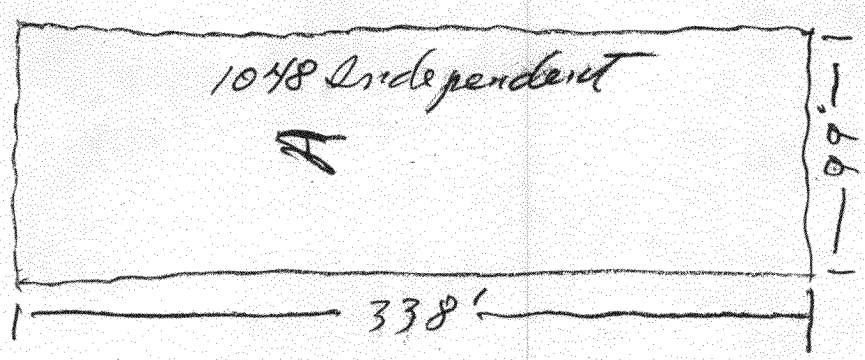 1048 Independent
A
99'
338'